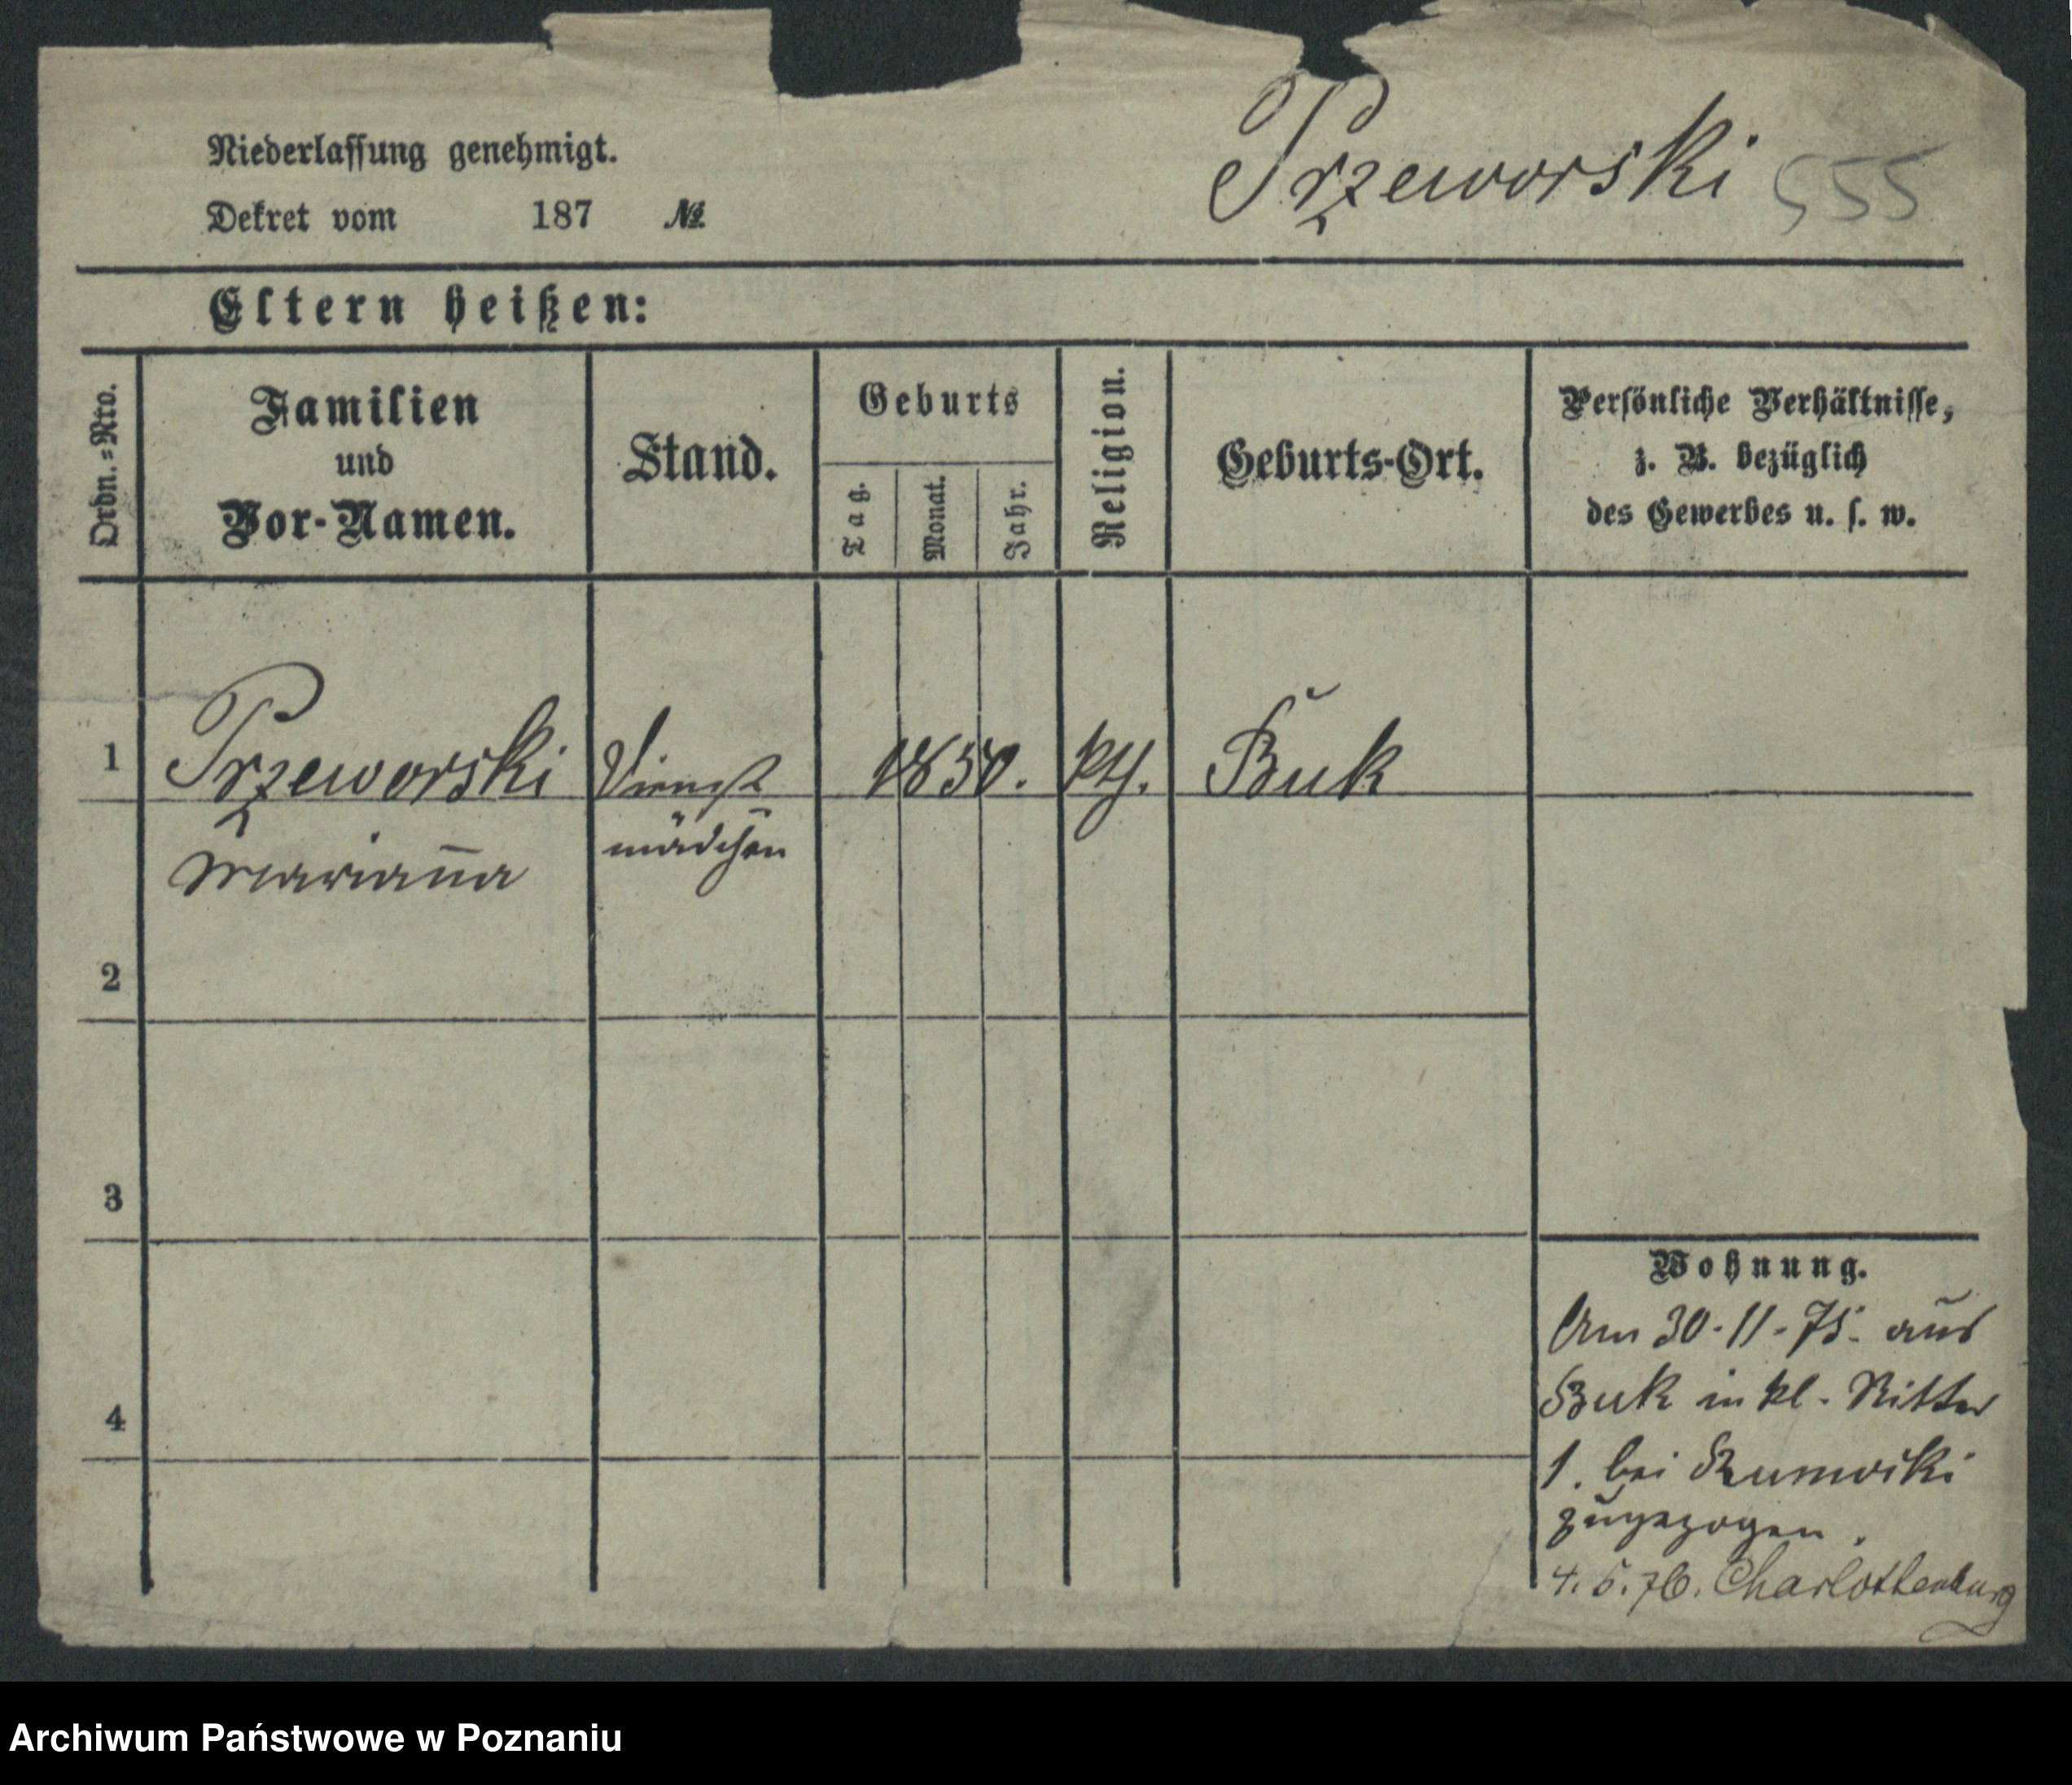 Niederlassung genehmigt.
Dekret vom 187 №
Przeworski 555
Eltern heißen:
Ordn.=Nro.
Familien
und
Vor-Namen.
Stand.
Geburts
Tag.
Monat.
Jahr.
Religion.
Geburts-Ort.
Persönliche Verhältnisse,
z. B. bezüglich
des Gewerbes u. s. w.
1 Przeworski Dienst 1850. kth. Buk
Marianna mädchen
2
3
4
Wohnung.
Am 30-11-75. aus
Buk in kl. Ritter
1. bei
zugezogen.
4.5.76. Charlottenburg
Archiwum Państwowe w Poznaniu